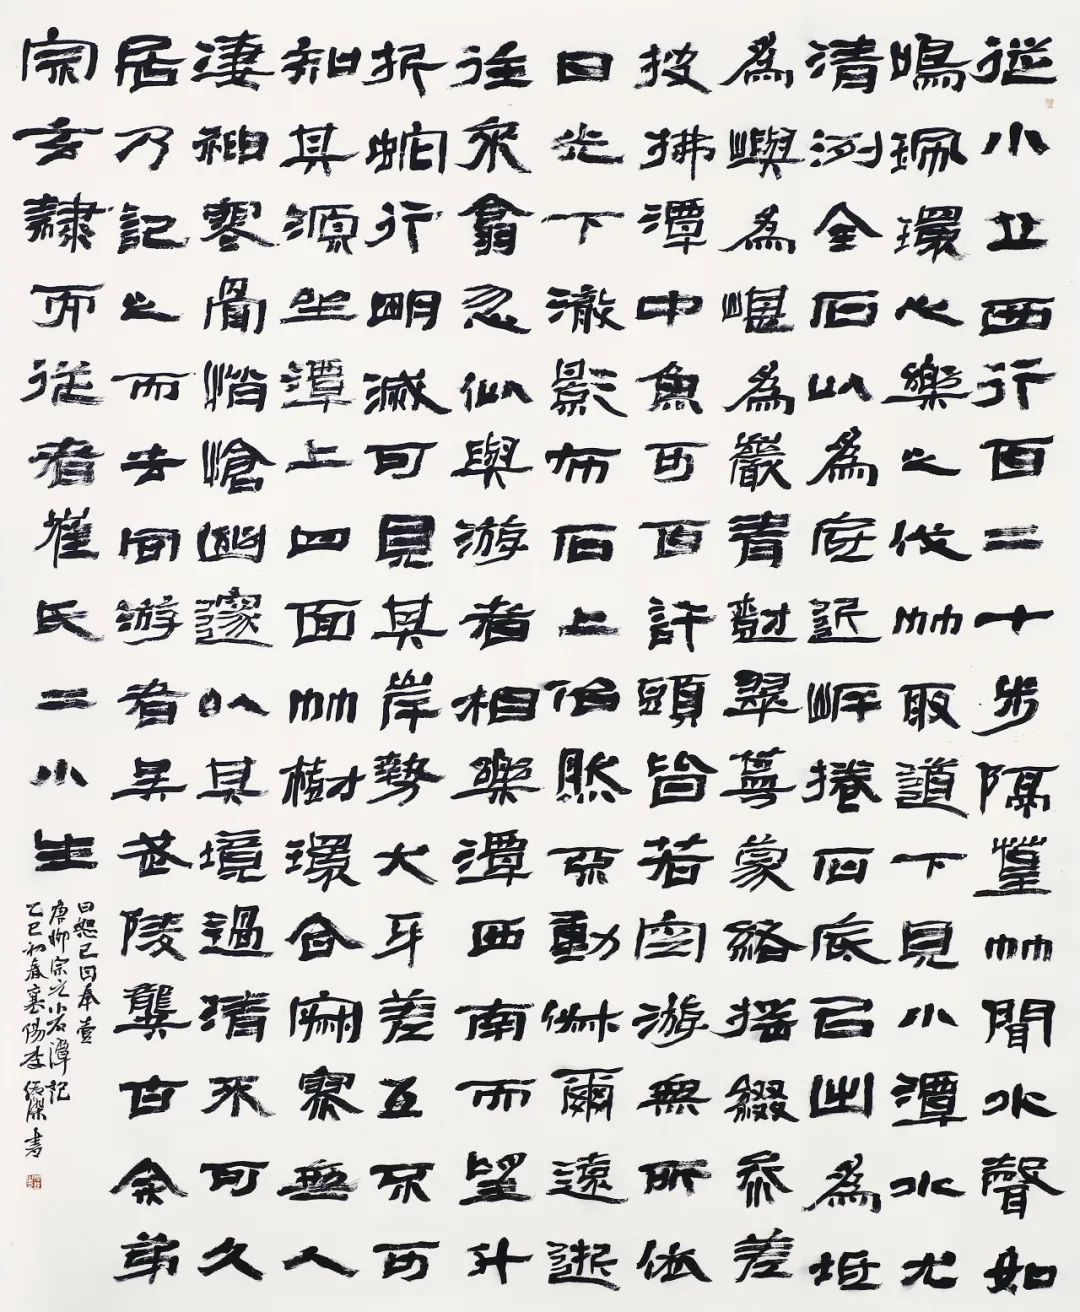 從小丘西行百二十步隔篁竹聞水聲如
鳴珮環心樂之伐竹取道下見小潭水尤
清洌全石以為底近岸捲石底以出為坻
為嶼為嵁為巖青樹翠蔓蒙絡搖綴參差
披拂潭中魚可百許頭皆若空游無所依
日光下澈影布石上佁然不動俶爾遠逝
往來翕忽似與游者相樂潭西南而望斗
折蛇行明滅可見其岸勢犬牙差互不可
知其源坐潭上四面竹樹環合寂寥無人
淒神寒骨悄愴幽邃以其境過清不可久
居乃記之而去同游者吳武陵龔古余弟
宗玄隸而從者崔氏二小生
曰恕己曰奉壹
唐柳宗元小石潭記
乙巳初春襄陽李傑書